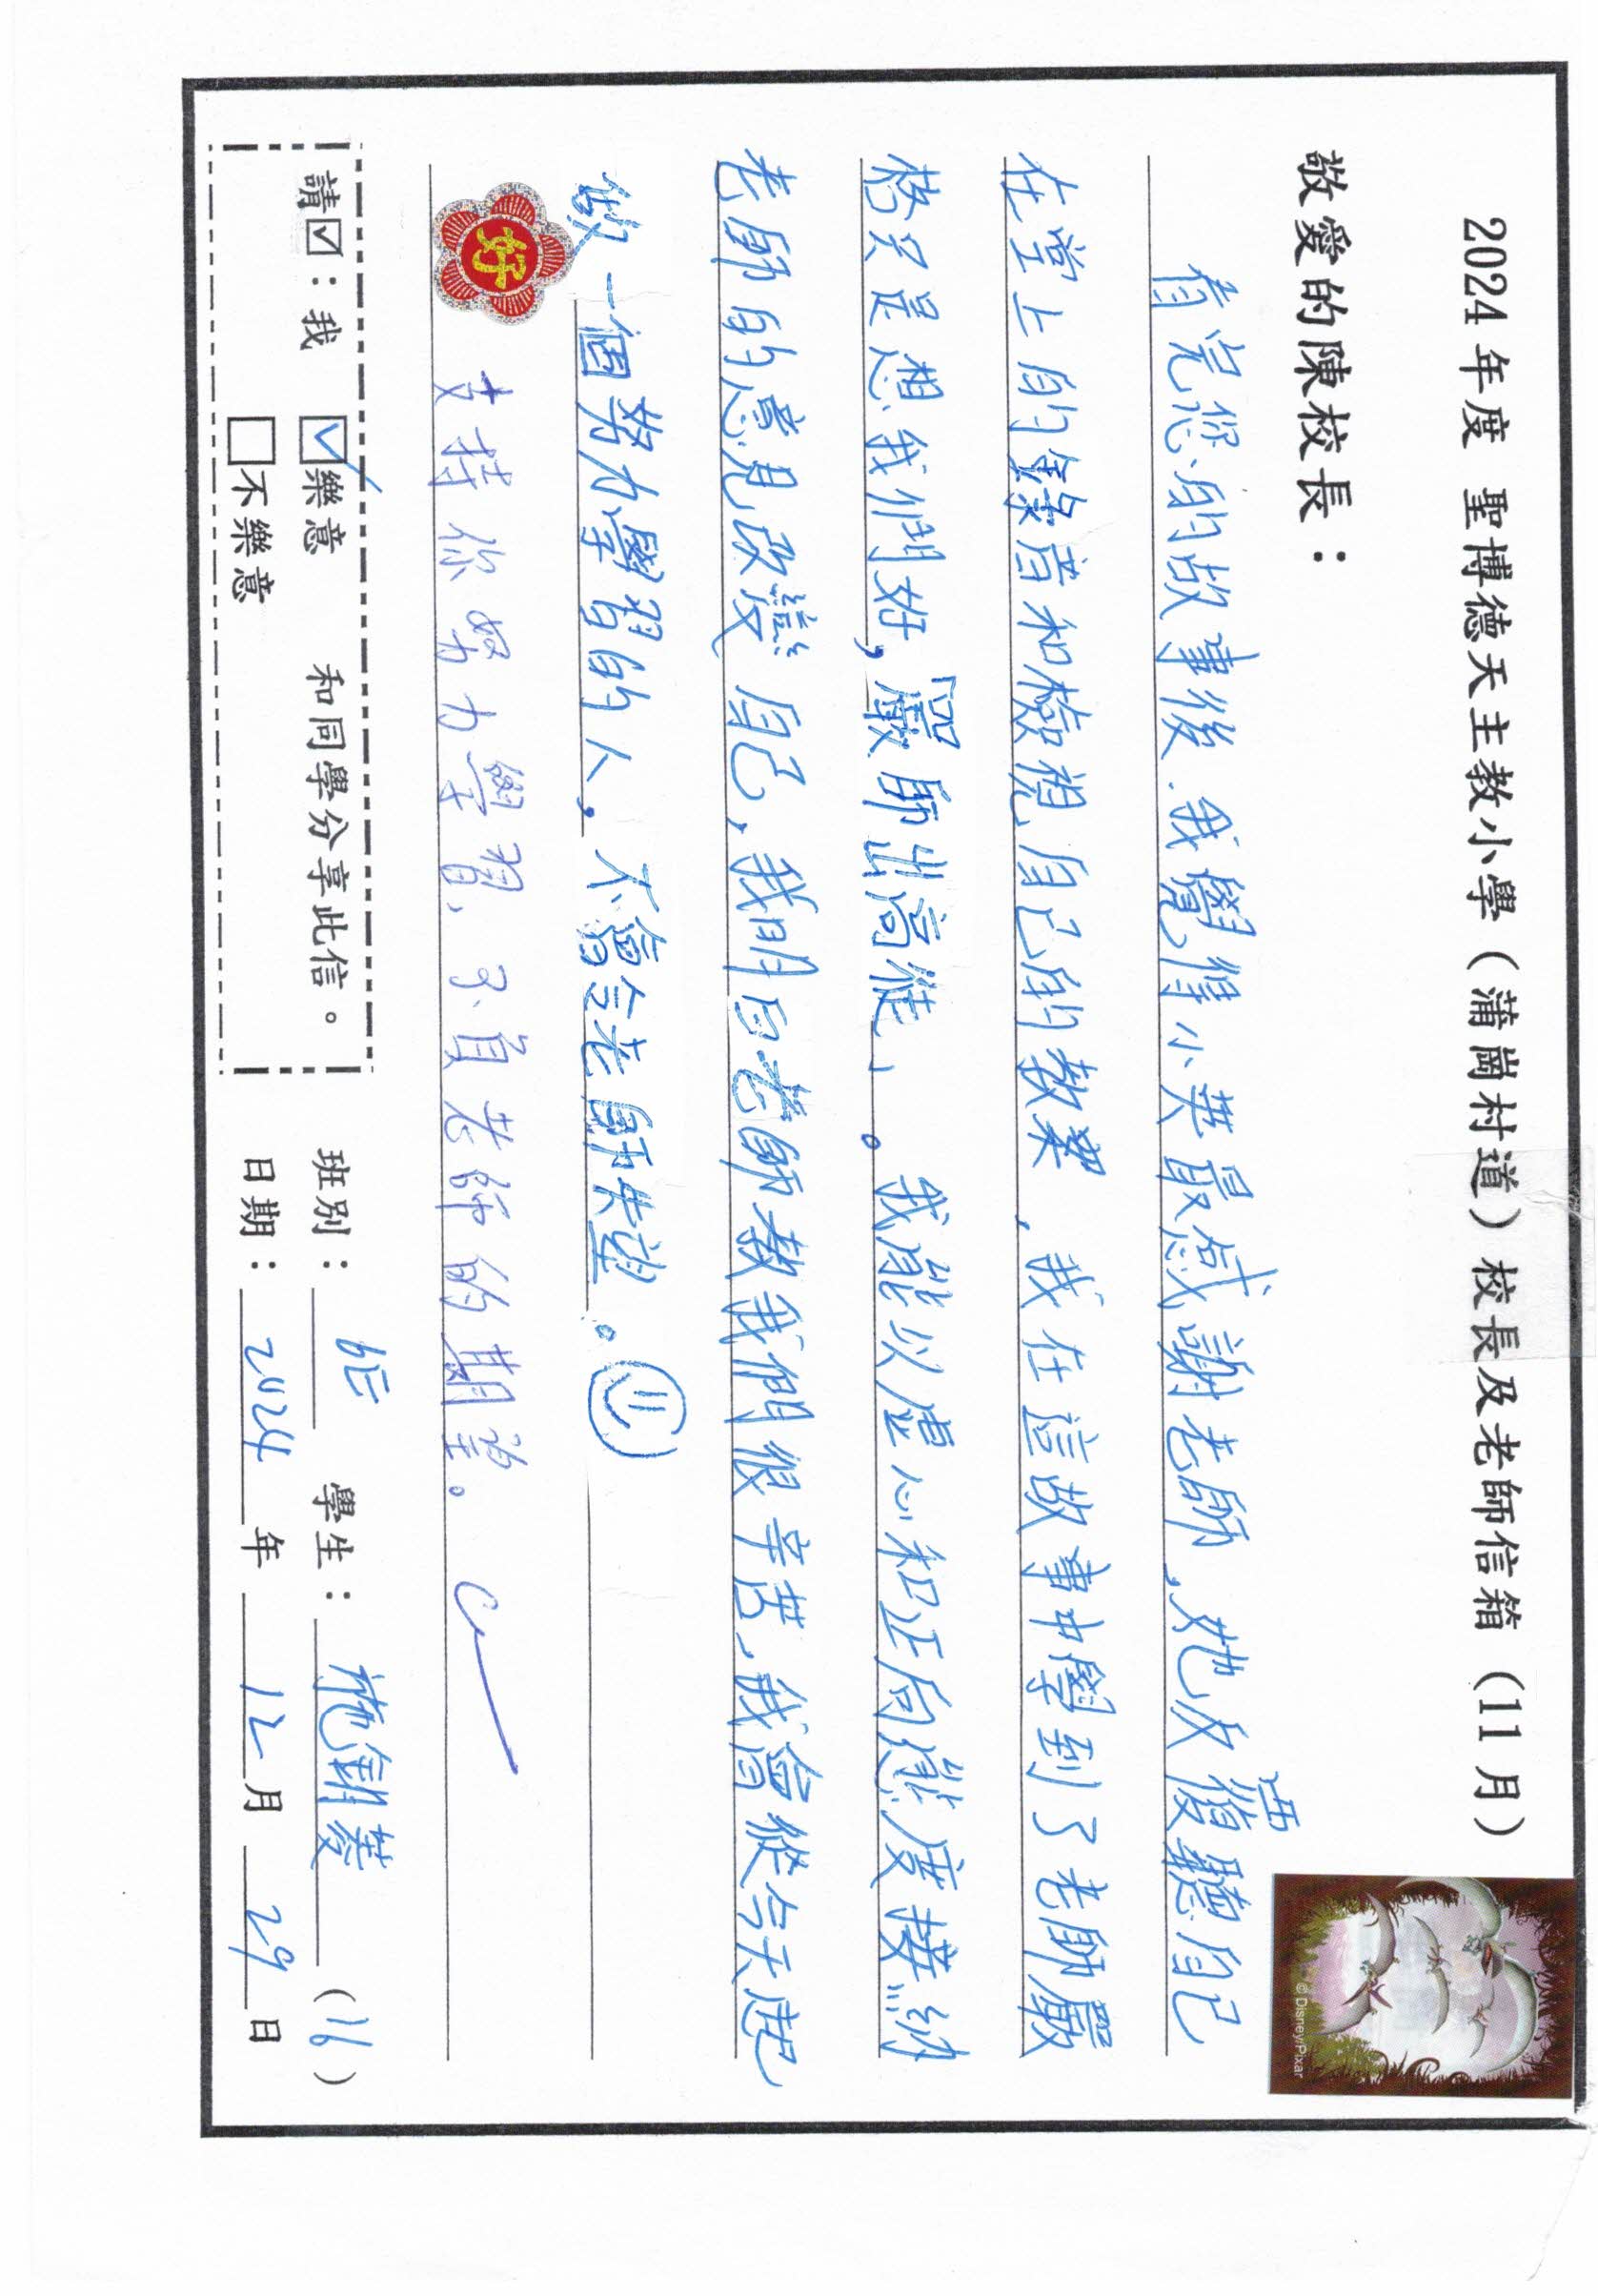 2024年度 聖博德天主教小學（蒲崗村道）校長及老師信箱（11月）
敬愛的陳校長：
看完您的故事後，我覺得小英最感謝老師，她反覆聽自己
在堂上的錄音和檢視自己的教案，我在這故事中學到了老師嚴
格只是想我們好，「嚴師出高徒」。我能以虛心和正向態度接納
老師的意見改變自己，我明白老師教我們很辛苦，我會從今天起
做一個努力學習的人，不會令老師失望。
好
支持你努力學習，不負老師的期望。
請☑：我 ☑樂意 和同學分享此信。
□不樂意
班別：6E 學生：施鈅蔆（16）
日期：2024年12月29日
© Disney/Pixar